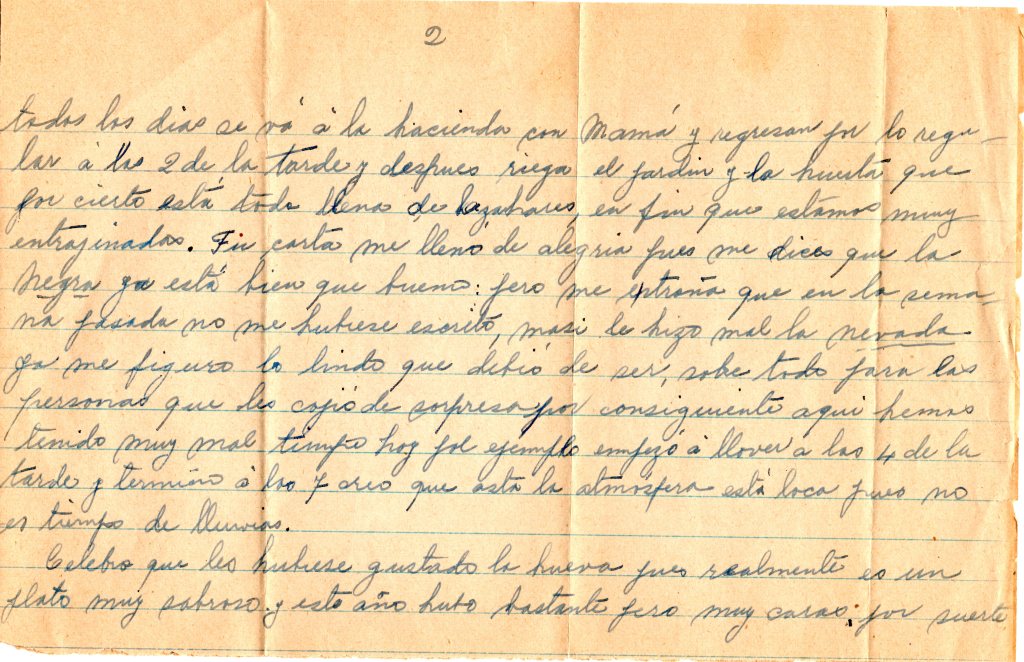 2
todos los dias se vá á la hacienda con Mamá y regresan por lo regu-
lar á las 2 de la tarde y despues riega el jardin y la huerta que
por cierto está toda llena de azahares, en fin que estamos muy
entrajinadas. Tu carta me llenó de alegria pues me dices que la
Negra ya está bien que bueno: pero me extraña que en la sema-
na pasada no me hubiese escrito, masi le hizo mal la nevada
ya me figuro lo lindo que debió de ser, sobe todo para las
personas que les cojió de sorpresa por consiguiente aqui hemos
tenido muy mal tiempo hoy por ejemplo empezó á llover a las 4 de la
tarde y termino á las 7 creo que asta la atmósfera está loca pues no
es tiempo de lluvias.
Celebro que les hubiese gustado la hueva pues realmente es un
plato muy sabroso. y este año hubo bastante pero muy caras: por suerte